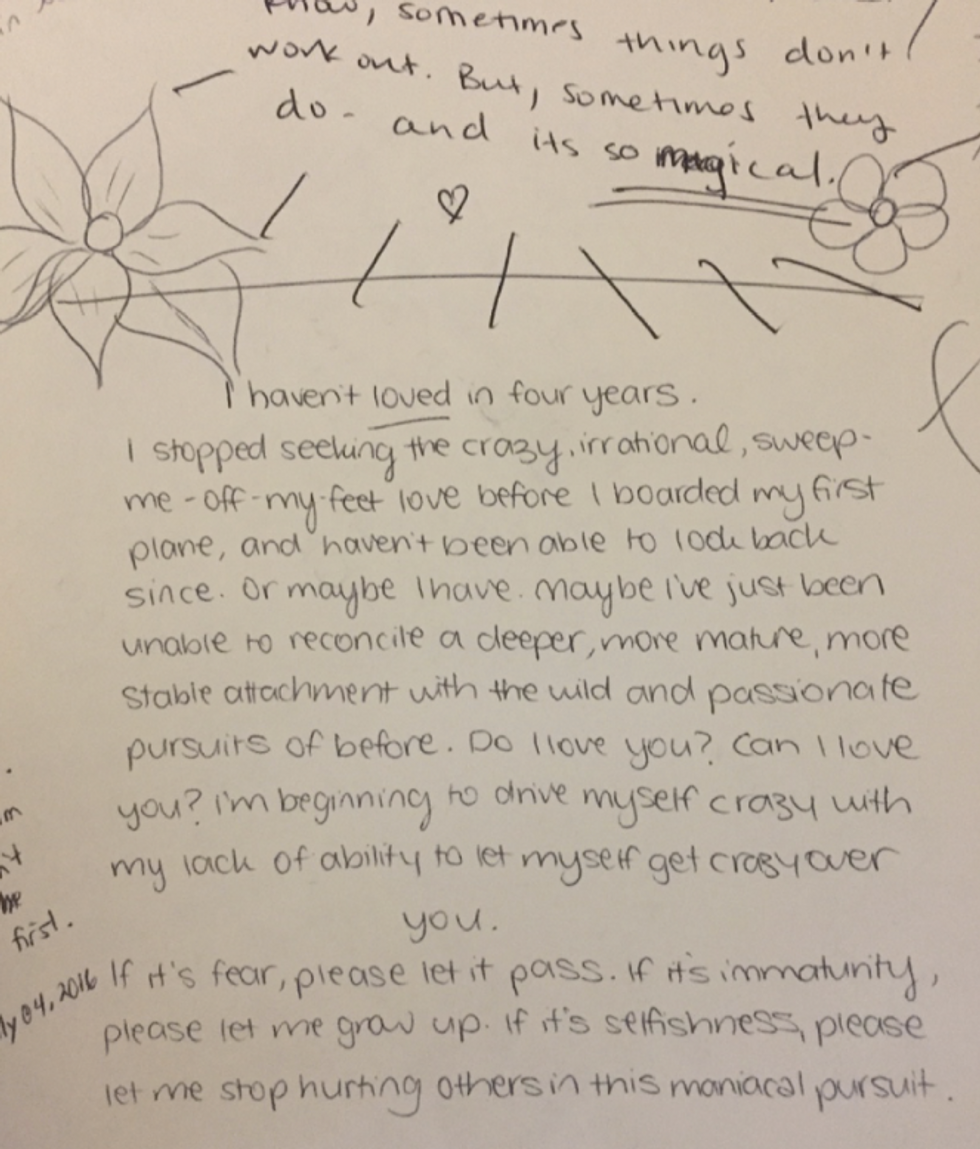 know, sometimes things don't
work out. But, sometimes they
do - and its so magical.
I haven't loved in four years.
I stopped seeking the crazy, irrational, sweep-
me-off-my-feet love before I boarded my first
plane, and haven't been able to look back
since. Or maybe I have. Maybe I've just been
unable to reconcile a deeper, more mature, more
stable attachment with the wild and passionate
pursuits of before. Do I love you? Can I love
you? I'm beginning to drive myself crazy with
my lack of ability to let myself get crazy over
you.
If it's fear, please let it pass. If it's immaturity,
please let me grow up. If it's selfishness, please
let me stop hurting others in this maniacal pursuit.
first.
04, 2016